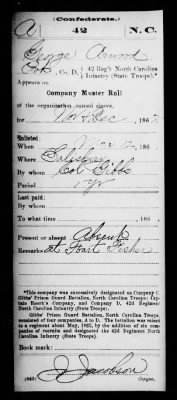 (Confederate.)
A 42 N.C.
George
, Co. D, 42 Reg't North Carolina
Infantry (State Troops).*
Appears on
Company Muster Roll
of the organization named above,
for Nov & Dec, 186
Enlisted:
When
Where Salisbury
By whom Col Gibbs
Period
Last paid:
By whom
To what time , 186
Present or absent Absent
Remarks: at Fort Fisher
*This company was successively designated as Company
Gibbs' Prison Guard Battalion, North Carolina Troops; Captain
Company, and Company D, 42d Regiment
North Carolina Infantry (State Troops).
Gibbs' Prison Guard Battalion, North Carolina Troops,
consisted of four companies, A to D. The battalion was raised
to a regiment about May, 1862, by the addition of six companies
of recruits and designated the 42d Regiment North
Carolina Infantry (State Troops).
Book mark:
J. Jacobson
(642) Copyist.